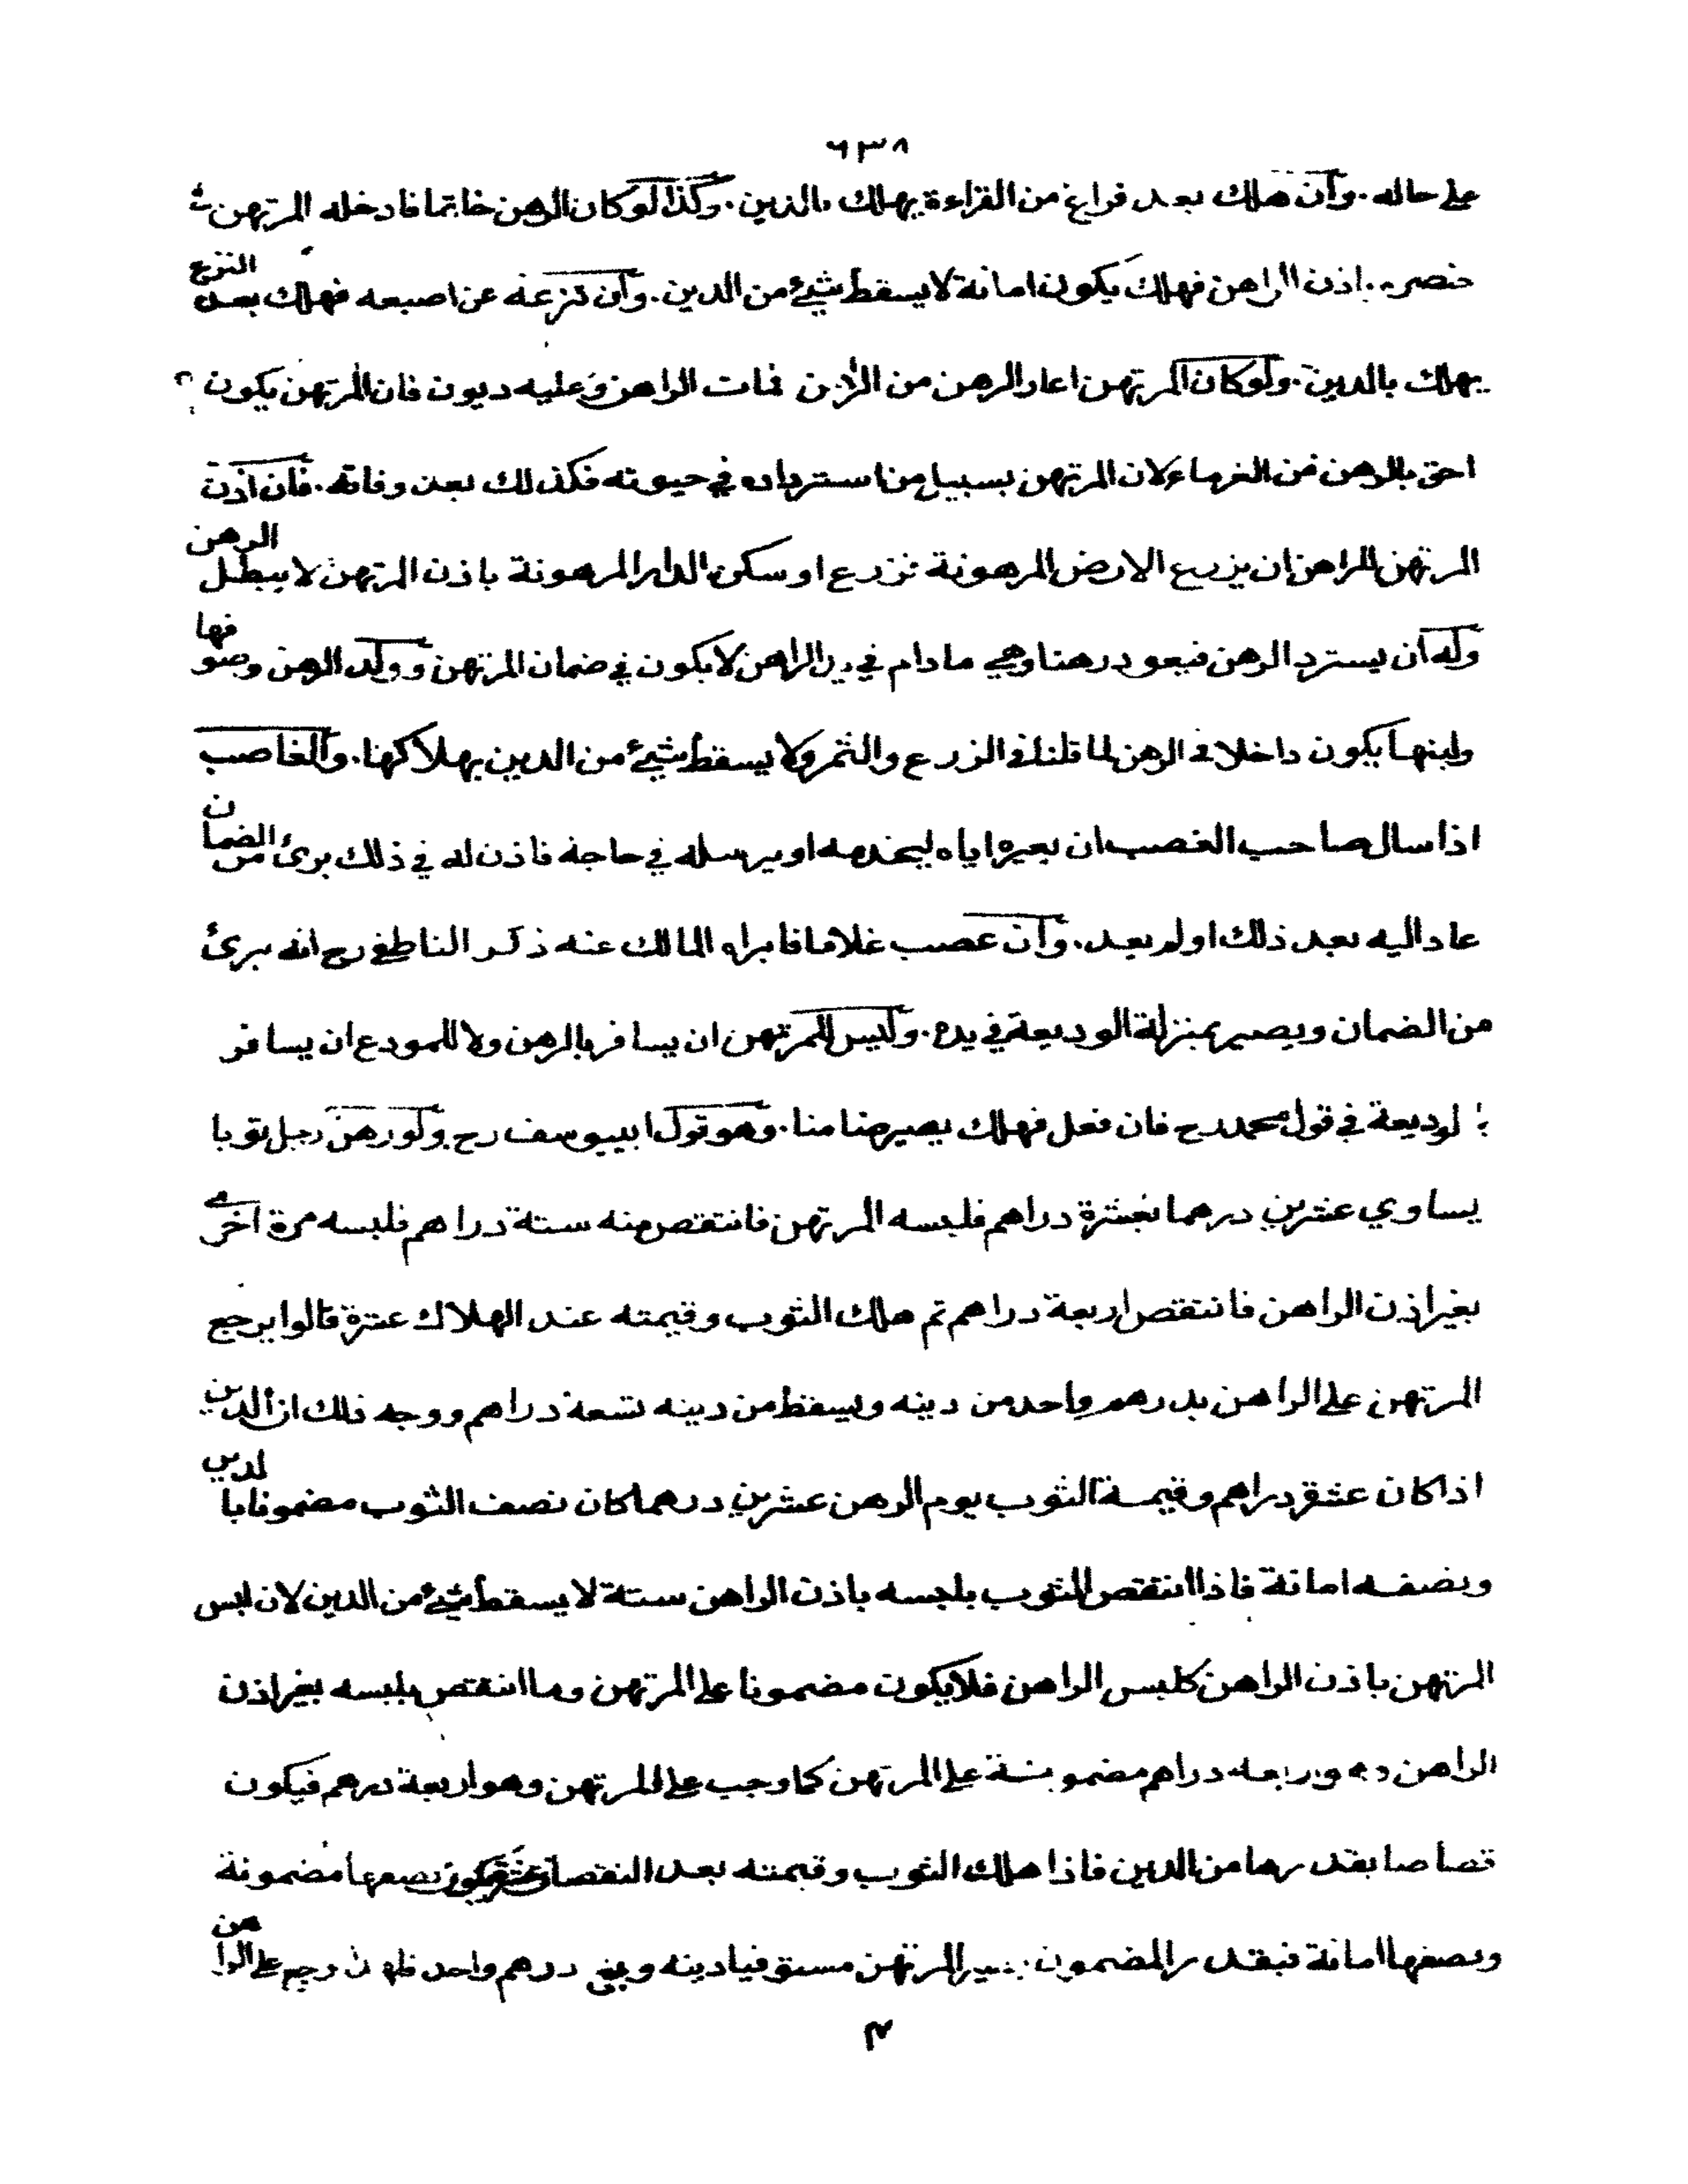 ٦٣٨
على حاله. وآن هلك بعد فراغ من القراءة يهلك بالدين. وكذا لوكان الرهن خاتما فادخله المرتهن في
خنصره باذن الراهن فهلك يكون امانة لا يسقط شيئ من الدين. وآن نزعه عن اصبعه فهلك بعد النزع
يهلك بالدين. ولوكان المرتهن اعار الرهن من الراهن فمات الراهن وعليه ديون فان المرتهن يكون
احق بالرهن من الغرماء لان المرتهن بسبيل من استرداده في حيوته فكذلك بعد وفاته. فان اذن
المرتهن للراهن ان يزرع الارض المرهونة فزرع او سكن الدار المرهونة باذن المرتهن لا يبطل الرهن
وله ان يسترد الرهن فيعود رهنا وهي مادام في يد الراهن لا يكون في ضمان المرتهن وولد الرهن وصوفها
ولبنها يكون داخلا في الرهن لما قلنا في الزرع والثمر ولا يسقط شيئ من الدين بهلاكها. والغاصب
اذا سال صاحب الغصب ان يعيره اياه ليخدمه او يرسله في حاجة فاذن له في ذلك برئ من الضمان
عاد اليه بعد ذلك اولم يعد. وآن غصب غلاما فابراه المالك عنه ذكر الناطفي رح انه برئ
من الضمان ويصير بمنزلة الوديعة في يده. وليس للمرتهن ان يسافر بالرهن ولا للمودع ان يسافر
بالوديعة في قول محمد رح فان فعل فهلك يصير ضامنا. وهو قول ابييوسف رح ولو رهن رجل ثوبا
يساوي عشرين درهما بعشرة دراهم فلبسه المرتهن فانتقص منه ستة دراهم فلبسه مرة اخرى
بغير اذن الراهن فانتقص اربعة دراهم ثم هلك الثوب وقيمته عند الهلاك عشرة قالوا يرجع
المرتهن على الراهن بدرهم واحد من دينه ويسقط من دينه تسعة دراهم ووجه ذلك ان الدين
اذا كان عشرة دراهم وقيمة الثوب يوم الرهن عشرين درهما كان نصف الثوب مضمونا بالدين
ونصفه امانة فاذا انتقص الثوب بلبسه باذن الراهن ستة لا يسقط شيئ من الدين لان لبس
المرتهن باذن الراهن كلبس الراهن فلا يكون مضمونا على المرتهن وما انتقص بلبسه بغير اذن
الراهن وهو اربعة دراهم مضمونة على المرتهن كما وجب على المرتهن وهو اربعة درهم فيكون
قصاصا بقدرها من الدين فاذا هلك الثوب وقيمته بعد النقصان عشرة يكون نصفها مضمونة
ونصفها امانة فبقدر المضمون يصير المرتهن مستوفيا دينه وبقي درهم واحد فلهذا رجع على الراهن